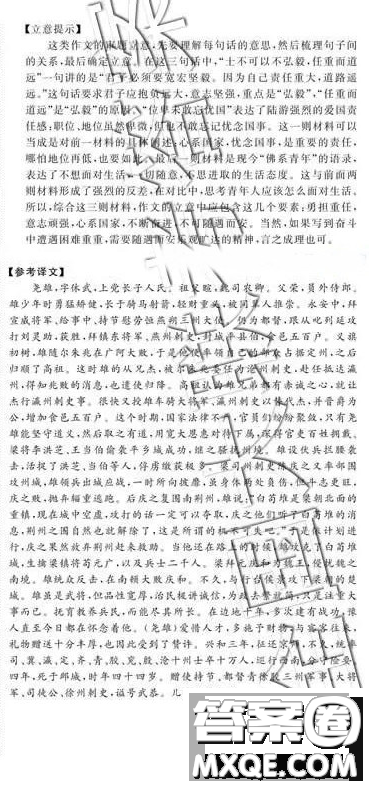 【立意提示】
这类作文的审题立意,先要理解每句话的意思,然后梳理句子间
的关系,最后确定立意。在这三句话中,“士不可以不弘毅,任重而道
远”一句讲的是“君子必须要宽宏坚毅。因为自己责任重大,道路遥
远。”这句话要求君子应抱负远大,意志坚强,重点是“弘毅”,“任重而
道远”是“弘毅”的原因。“位卑未敢忘忧国”表达了陆游强烈的爱国责
任感:职位、地位虽然卑微,但也不敢忘记忧念国事。这一则材料可以
当成是对前一材料的具体阐述:心系国家,忧念国事,是重要的责任,
哪怕地位再低,也要如此。最后一则材料是现今“佛系青年”的语录,
表达了不想面对生活,一切随意,不思进取的生活态度。这与前面两
则材料形成了强烈的反差,在对比中,思考青年人应该怎么面对生活。
所以,综合这三则材料,作文的立意中应包含这几个要素:勇担重任,
意志顽强,心系国家,不断奋进,不可随遇而安。当然,如果写到奋斗
中遭遇困难重重,需要随遇而安乐观旷达的精神,言之成理也可。
【参考译文】
尧雄,字休武,上党长子人氏。祖父暄,魏司农卿。父荣,员外侍郎。
雄少年时勇猛矫健,长于骑马射箭,轻财重义,被同辈人推崇。永安中,拜
宣威将军、给事中、持节慰劳恒燕朔三州大使。仍为都督,跟从叱列延攻
打刘灵助,获胜,拜镇东将军、燕州刺史,封城平县伯,食邑五百户。义旗
初树,雄随尔朱兆在广阿大败,于是他便率领自己的部众占据定州,之后
归顺了高祖。这时雄的从兄杰,被尔朱兆委任为沧州刺史,赴任抵达瀛
州,得知兆败的消息,也遣使归降。高祖认为雄兄弟都有赤诚之心,就让
杰行瀛州刺史事。很快又授雄车骑大将军、瀛州刺史以替代杰,并晋爵为
公,增加食邑五百户。这个时期,国家法律不严,官员们纷纷聚敛,只有尧
雄能坚守道义,然后取之有道,用宽大恩惠对待下属,深得官吏百姓拥戴。
梁将李洪芝、王当伯偷袭平乡城成功,继之骚扰州境。雄设伏兵拦腰袭
击,活捉了洪芝、当伯等人,俘虏缴获极多。梁司州刺史陈庆之又率部围
攻州城,雄领兵出城应战,一时所向披靡,虽身体两处负伤,但斗志更旺,
庆之败,抛弃辎重逃跑。后庆之复围南荆州,雄说:“白苟堆是梁朝北面的
重镇,现在城中空虚,攻打的话一定可以夺取,庆之他们听了白苟堆的消
息,荆州之围自然也就解除了,这是所谓的机不可失吧。”于是依计划进
行,庆之果然放弃荆州赶来救助。当他还在路上的时候,雄攻克了白苟堆
城,生擒梁镇将苟元广,以及兵士二千人。梁拜元庆和为魏王,侵扰魏之
南境。雄统众反击,在南顿大败庆和。不久,与行台侯景攻下梁朝的楚
城。雄虽是武将,但品性宽厚,治民能讲诚信,为政去繁就简,只是注重大
事而已。抚育教养兵民,而能尽其所长。在边地十年,多次建有战功,豫
人直至今日都在怀念着他。(尧雄)爱惜人才,多施于财物,与宾客往来,
礼物赠送十分丰厚,也因此受到了赞许。兴和三年,征还京师,不久,统率
司、冀、瀛、定、齐、青、胶、兖、殷、沧十州士卒十万人,巡行西南,分守险要。
四年,死于邺城,时年四十四岁。赠使持节、都督青徐胶三州军事、大将
军、司徒公、徐州刺史,谥号武恭。儿
答案圈
MXQE.COM